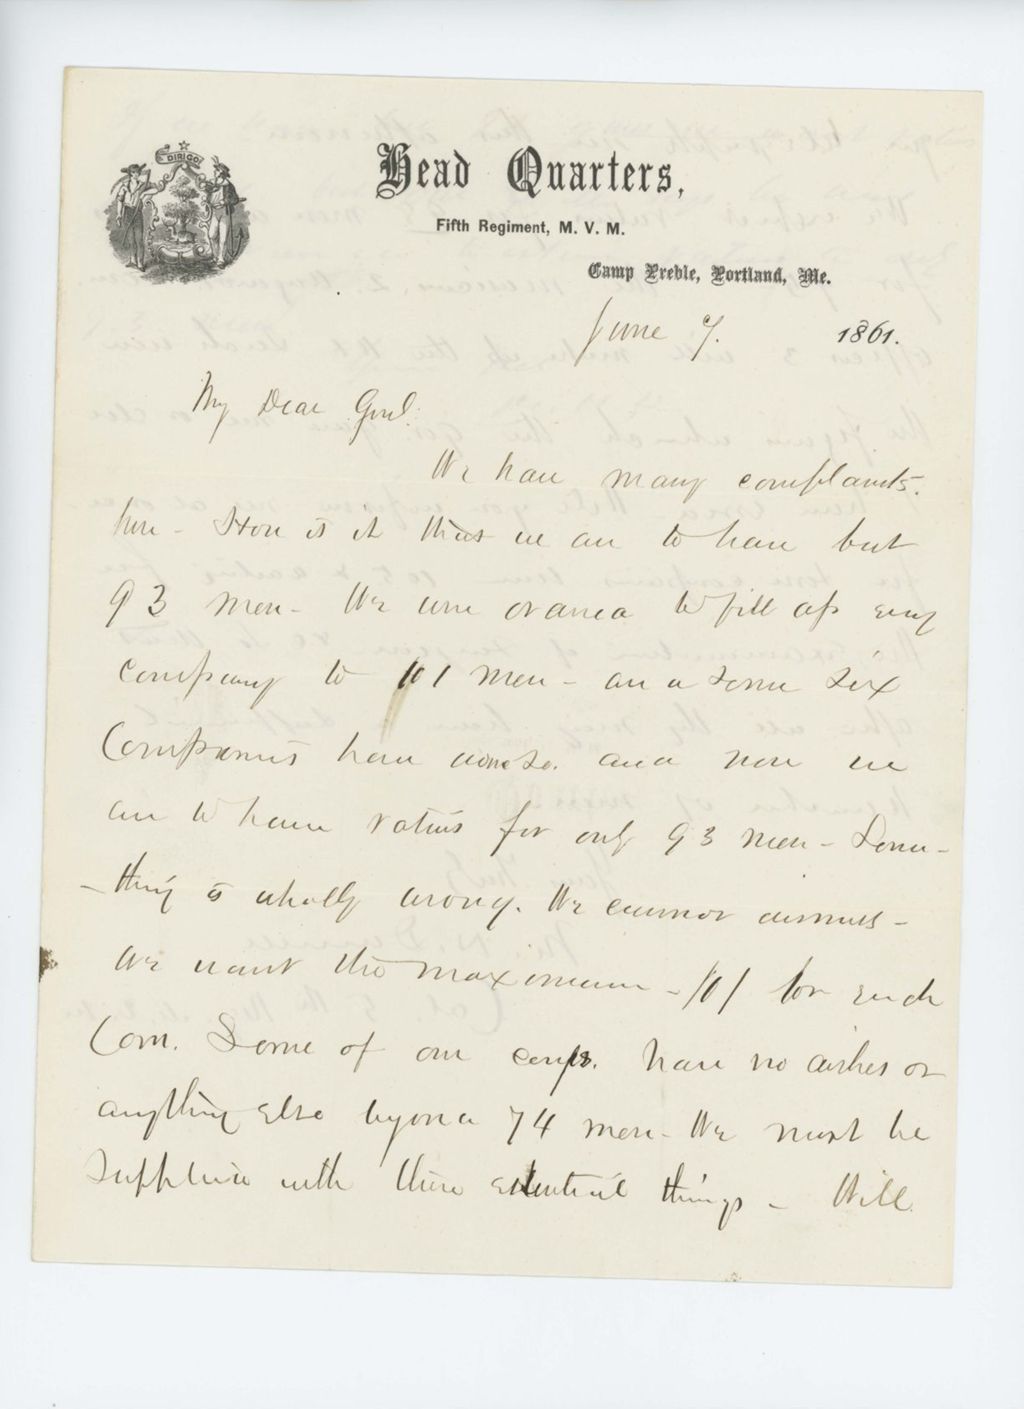 DIRIGO
Head Quarters,
Fifth Regiment, M. V. M.
Camp Preble, Portland, Me.
June 7. 1861.
My Dear Genl.
We have many complaints.
here - How is it that we are to have but
93 men - We were ordered to fill up every
company to 101 men - and some six
Companies have done so. and now we
are to have rations for only 93 men - Some-
-thing is wholly wrong. We cannot dismiss -
We want the maximum - 101 for each
Com. Some of our comps. have no dishes or
anything else beyond 74 men - We must be
supplied with these essential things - Will